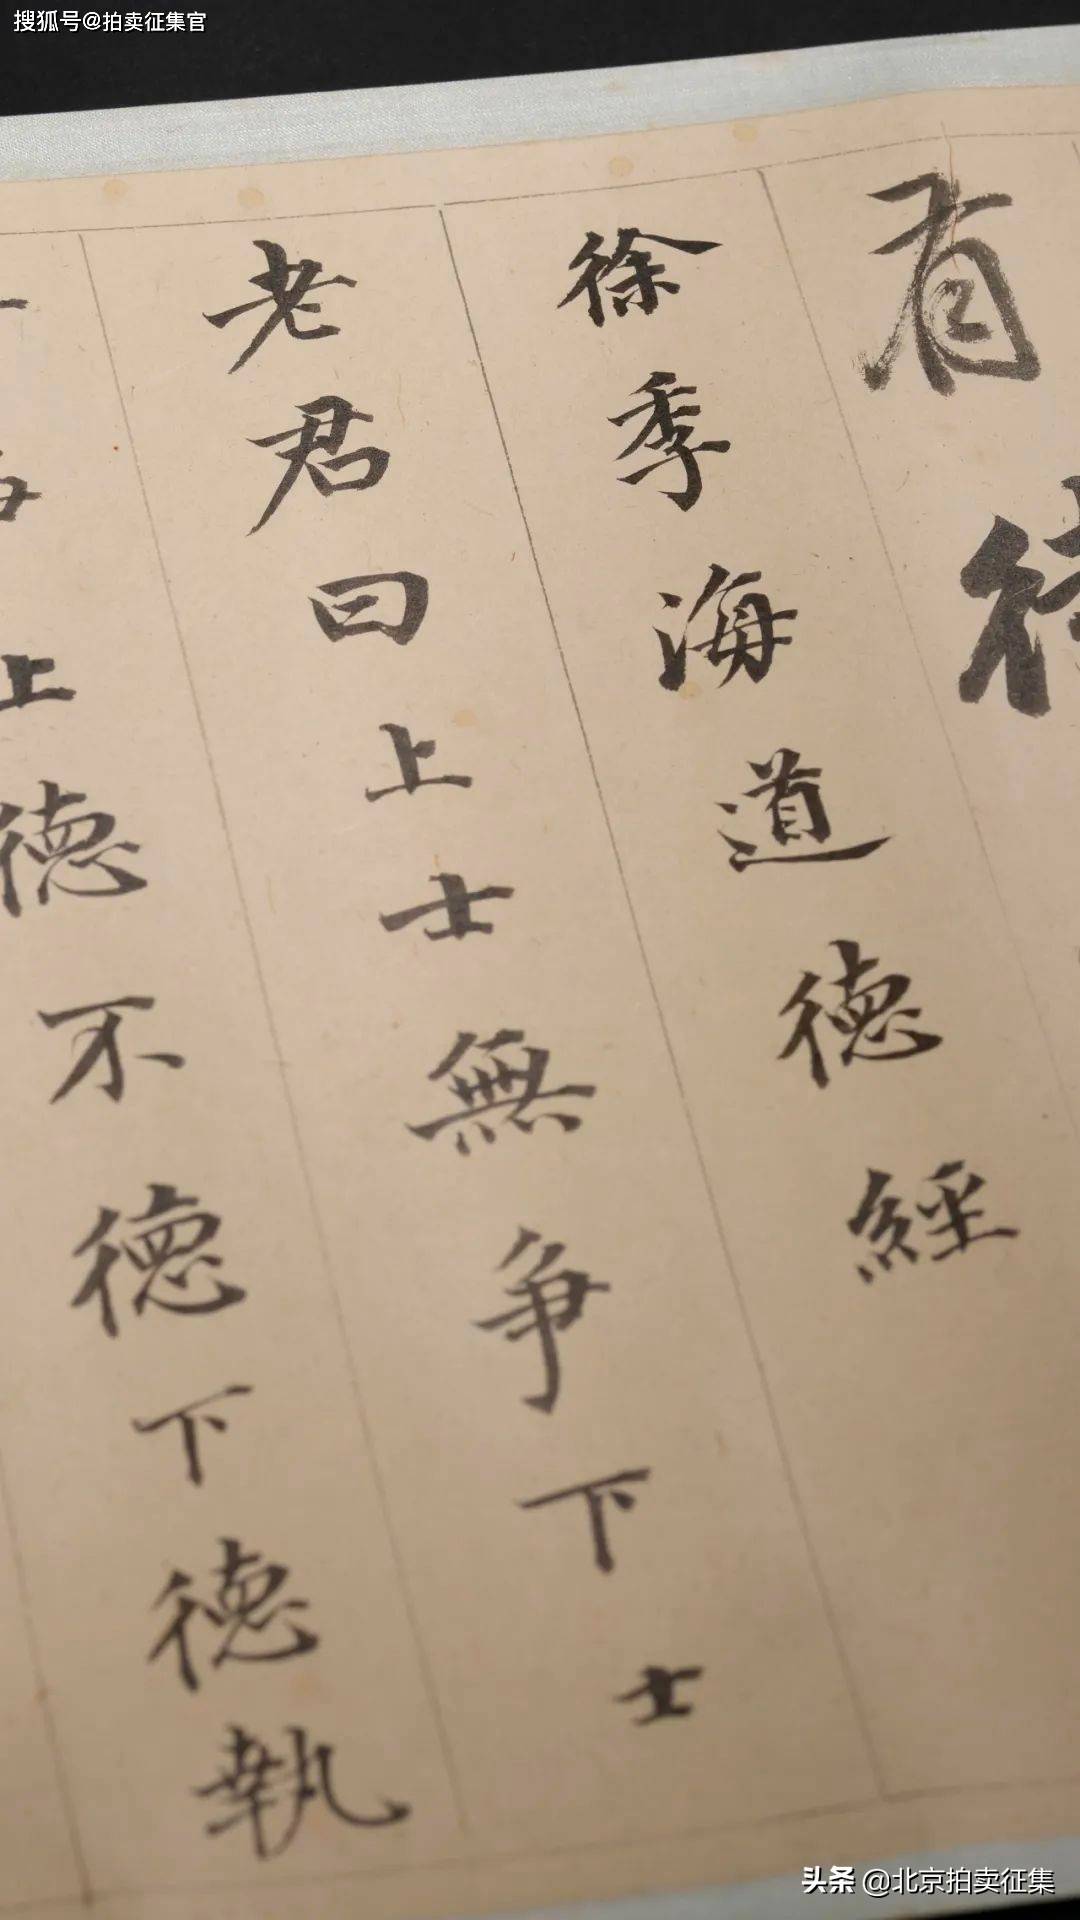 搜狐号@拍卖征集官
有
徐季海道德經
老君曰上士無争下士
上德不德下德執
头条 @北京拍卖征集